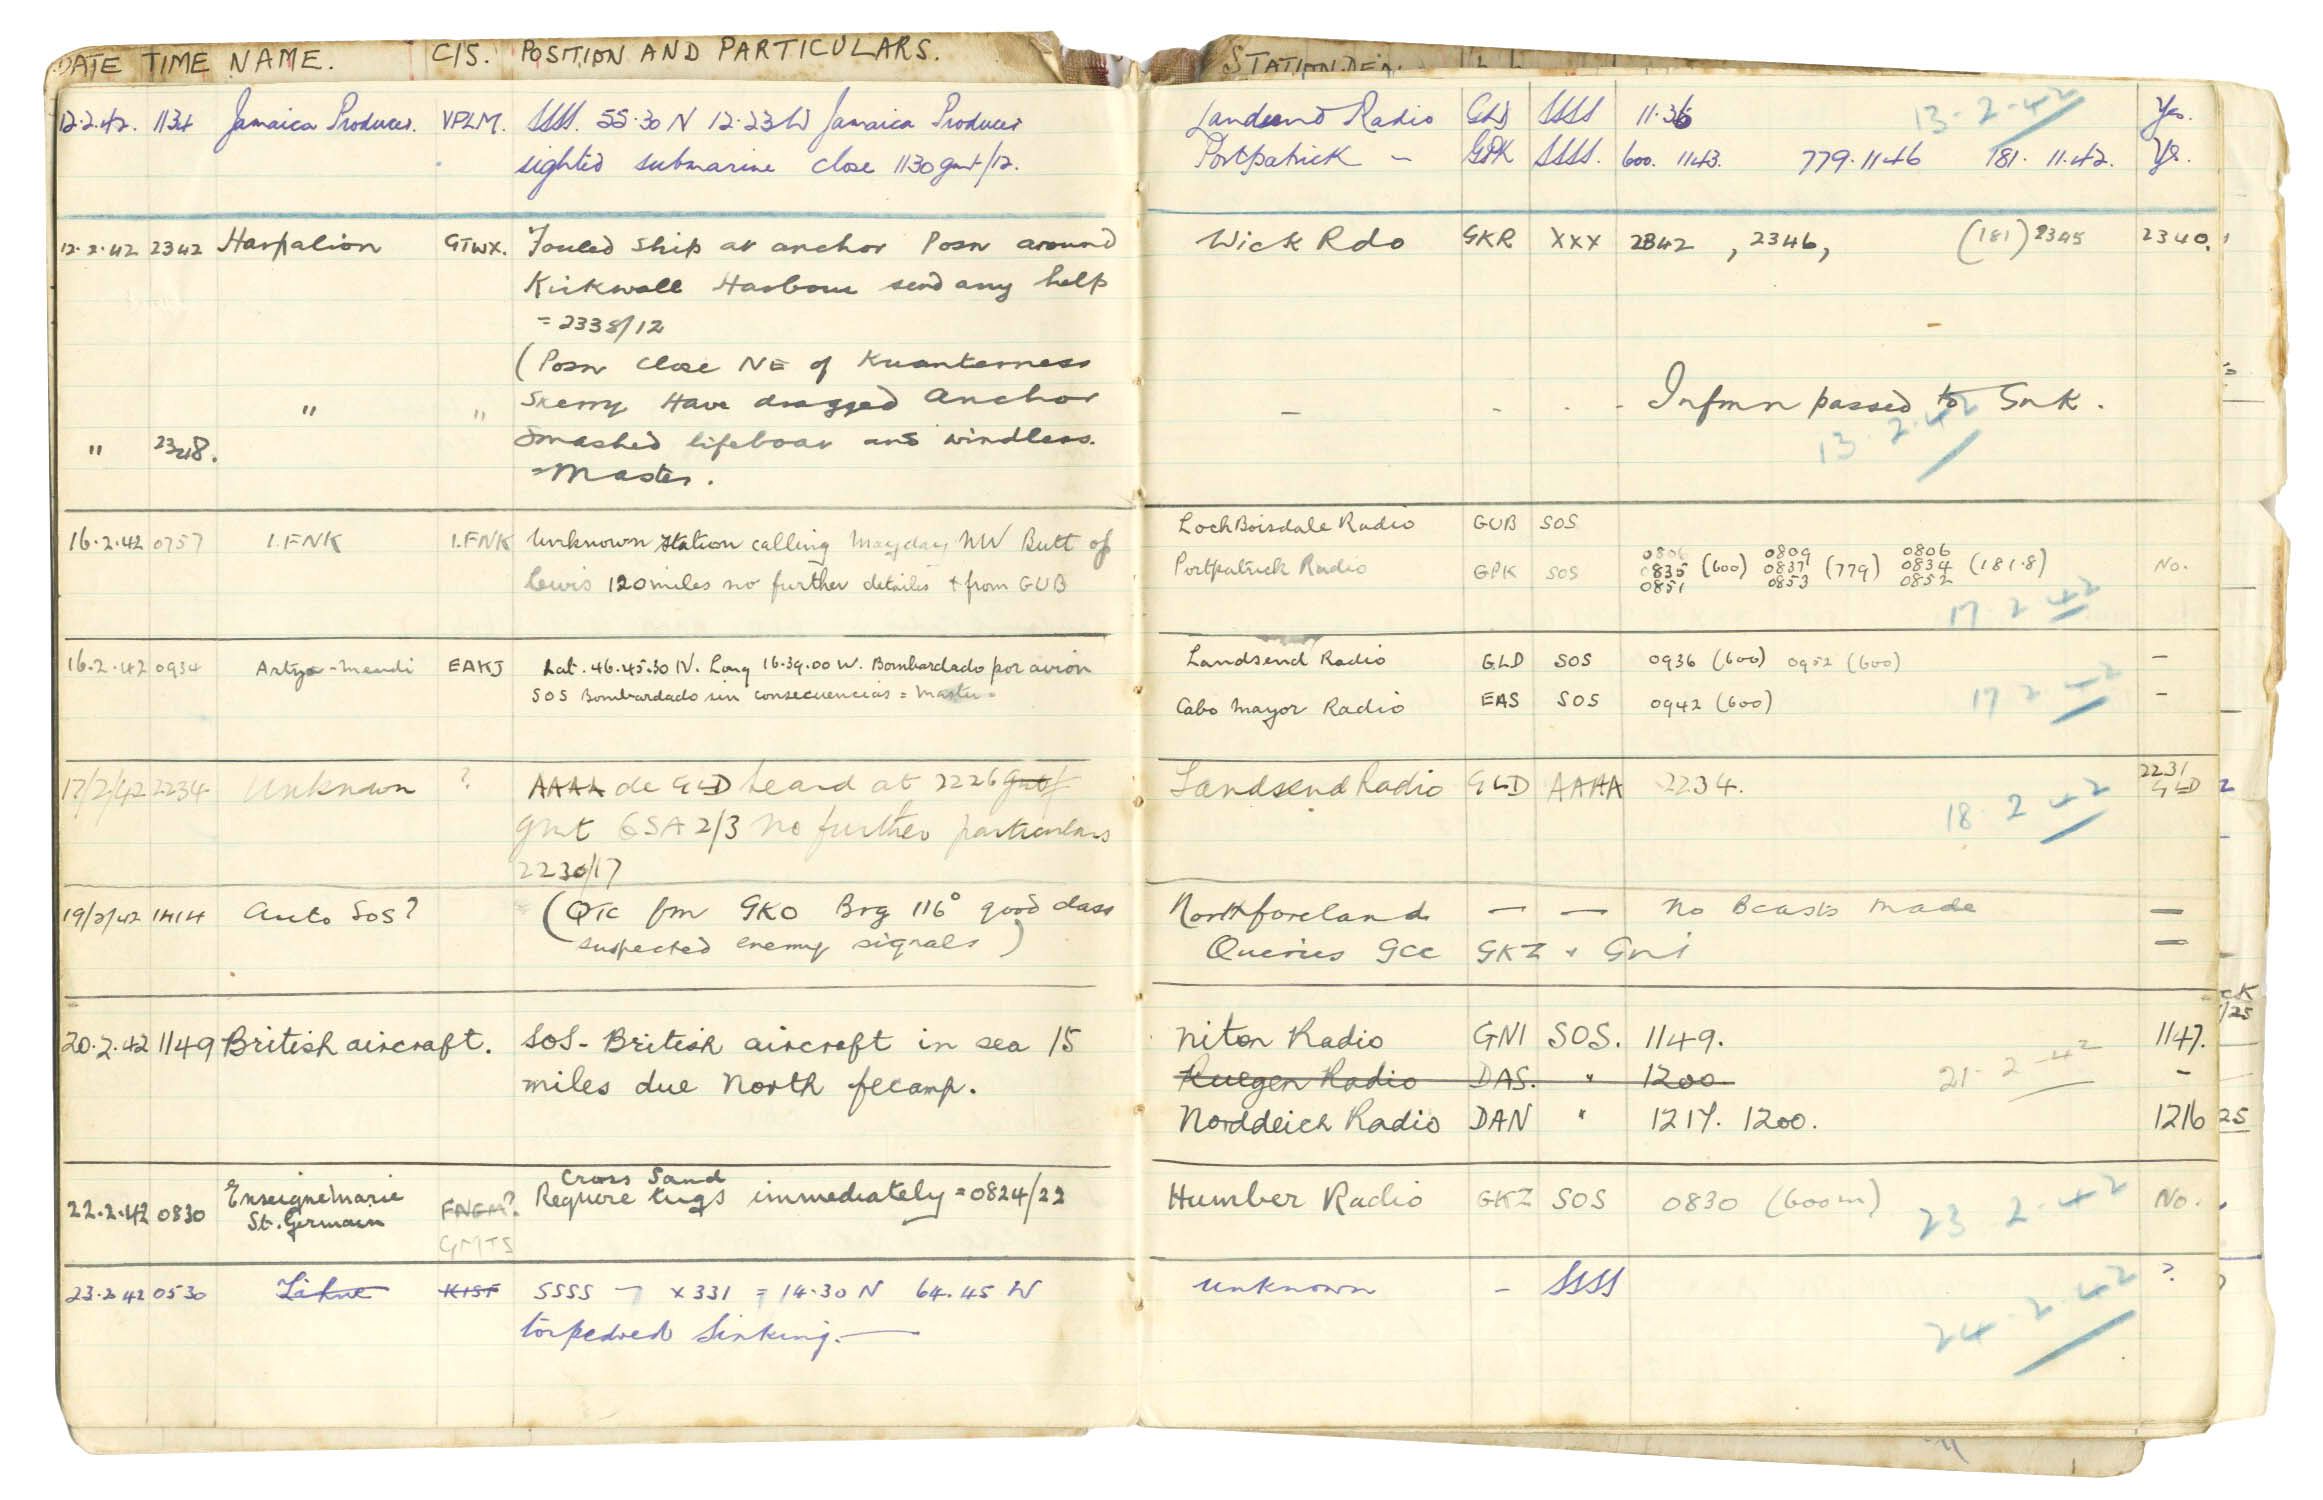 DATE TIME NAME. C/S. POSITION AND PARTICULARS.
12.2.42. 1134 Jamaica Producer. VPLM. SSSS. 55.30 N 12.23 W Jamaica Producer
sighted submarine close 1130 gmt/12.
12.2.42 2342 Harpalion GTWX. Fouled ship at anchor Posn around
Kirkwall Harbour send any help
= 2338/12
(Posn close NE of Kuanterness
" " Skerry Have dragged anchor
" 2348. Smashed lifeboat and windlass.
= Master.
16.2.42 0757 1.FNK 1.FNK Unknown station calling Mayday NW Butt of
Lewis 120 miles no further details + from GUB
16.2.42 0934 Artya-Mendi EAKJ Lat. 46.45.30 N. Long 16.39.00 W. Bombardado por avion
SOS Bombardado sin consecuencias = Master =
17/2/42 2234 Unknown ? AAAA de GLD heard at 2226
gmt QSA 2/3 no further particulars
2230/17
19/2/42 1414 Auto SOS? (QTC fm GKO Brg 116° good class
suspected enemy signals)
20.2.42 1149 British aircraft. SOS- British aircraft in sea 15
miles due North fecamp.
Cross Sand
22.2.42 0830 Enseigne Marie FNGM? Require tugs immediately = 0824/22
St. Germain
GMTS
23.2.42 0530 KIST SSSS x 331 = 14.30 N 64.45 W
torpedoed sinking.
Landsend Radio GLD SSSS 11.36 13.2.42 Yes.
Portpatrick - GPK SSSS. 600. 1143. 779. 1146 181. 11.42. Ys.
Wick Rdo GKR XXX 2342, 2346, (181) 2345 2340.
- - - - Infmn passed to Snk.
13.2.42
LochBoisdale Radio GUB SOS
0806 0809 0806
Portpatrick Radio GPK SOS 0835 (600) 0837 (779) 0834 (181.8) No.
0851 0853 0852
17.2.42
Landsend Radio GLD SOS 0936 (600) 0952 (600) -
Cabo Mayor Radio EAS SOS 0942 (600) 17 2 42 -
Landsend Radio GLD AAAA 2234. 2231
GLD
18.2.42
Northforeland - - No Bcasts made -
Queries GCC GKZ + GNI -
Niton Radio GNI SOS. 1149. 1147.
Ruegen Radio DAS. " 1200 21.2.42 -
Norddeich Radio DAN " 1217. 1200. 1216
Humber Radio GKZ SOS 0830 (600m) 23.2.42 No.
unknown - SSSS ?
24.2.42